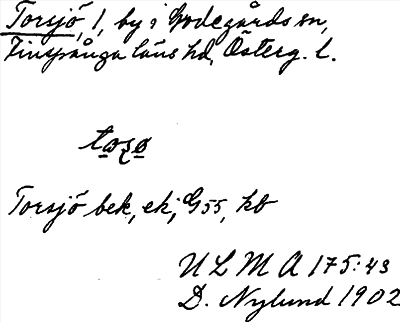 Torsjö, 1, by i Godegårds sn,
Finspånga läns hd, Österg. l.
Torsjö bek, ek; G55, kb
ULMA 175:43
D. Nylund 1902